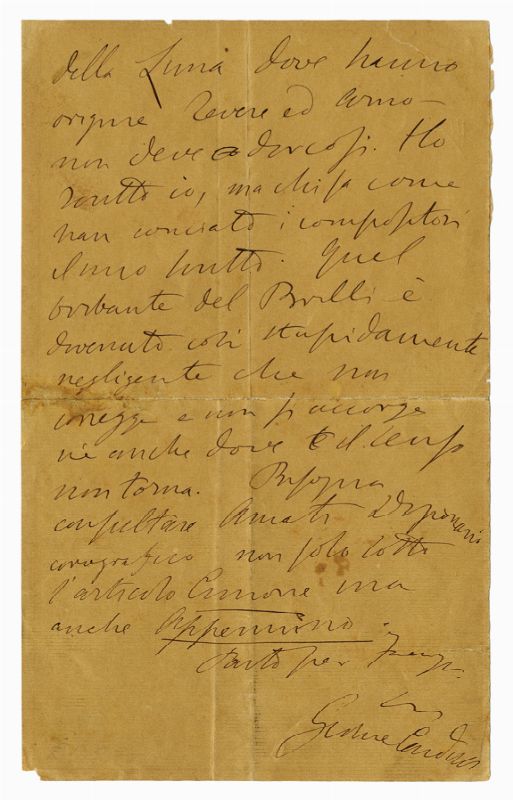 della Luna dove hanno
origine Tevere ed Arno
non deve dir così. Ho
scritto io, ma chi sa come
han conciato i compositori
il mio scritto. Quel
birbante del Brilli è
divenuto così stupidamente
negligente che non
corregge e non si accorge
nè anche dove il senso
non torna. Bisogna
consultare Amati Dizionario
corografico non solo sotto
l'articolo Limone ma
anche Appennino.
Parto per
Giosue Carducci